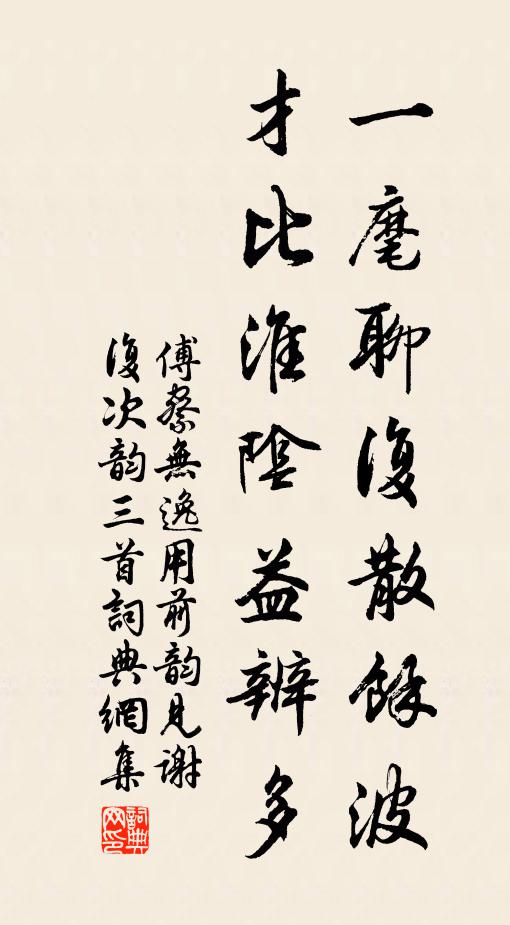 一麾聊復散餘波
才比淮陰益辨多
傅察無逸用前韵見謝
復次韵三首詞典網集
詞典
网印